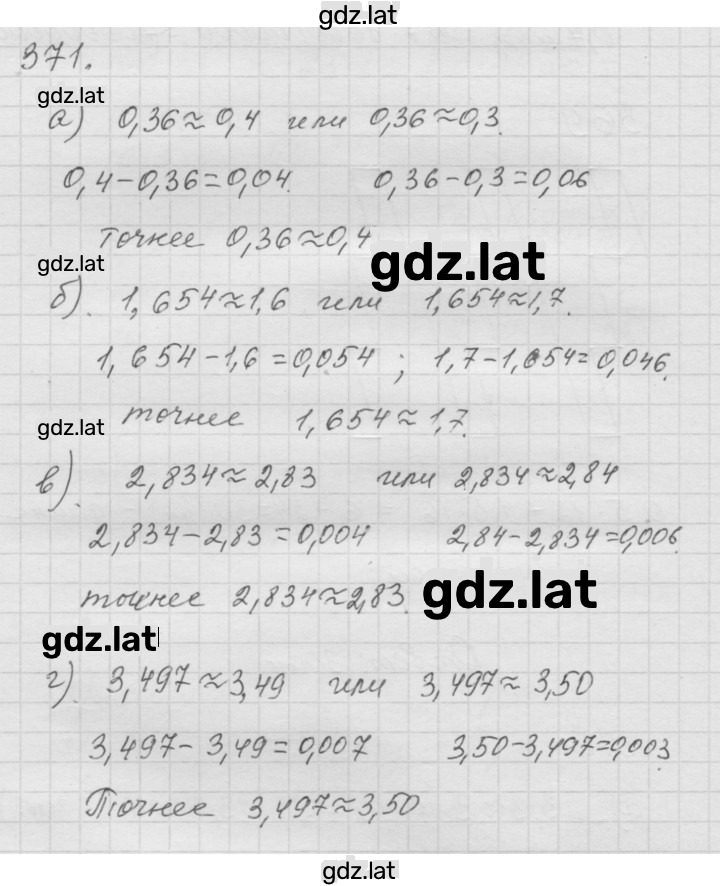 gdz.lat
371.
gdz.lat
а) 0,36≈0,4 или 0,36≈0,3.
0,4-0,36=0,04. 0,36-0,3=0,06
точнее 0,36≈0,4
gdz.lat
gdz.lat
б). 1,654≈1,6 или 1,654≈1,7.
1,654-1,6=0,054 ; 1,7-1,654=0,046.
gdz.lat
точнее 1,654≈1,7.
в). 2,834≈2,83 или 2,834≈2,84
2,834-2,83=0,004 2,84-2,834=0,006.
точнее 2,834≈2,83.
gdz.lat
gdz.lat
г). 3,497≈3,49 или 3,497≈3,50
3,497-3,49=0,007 3,50-3,497=0,003.
Точнее 3,497≈3,50
gdz.lat